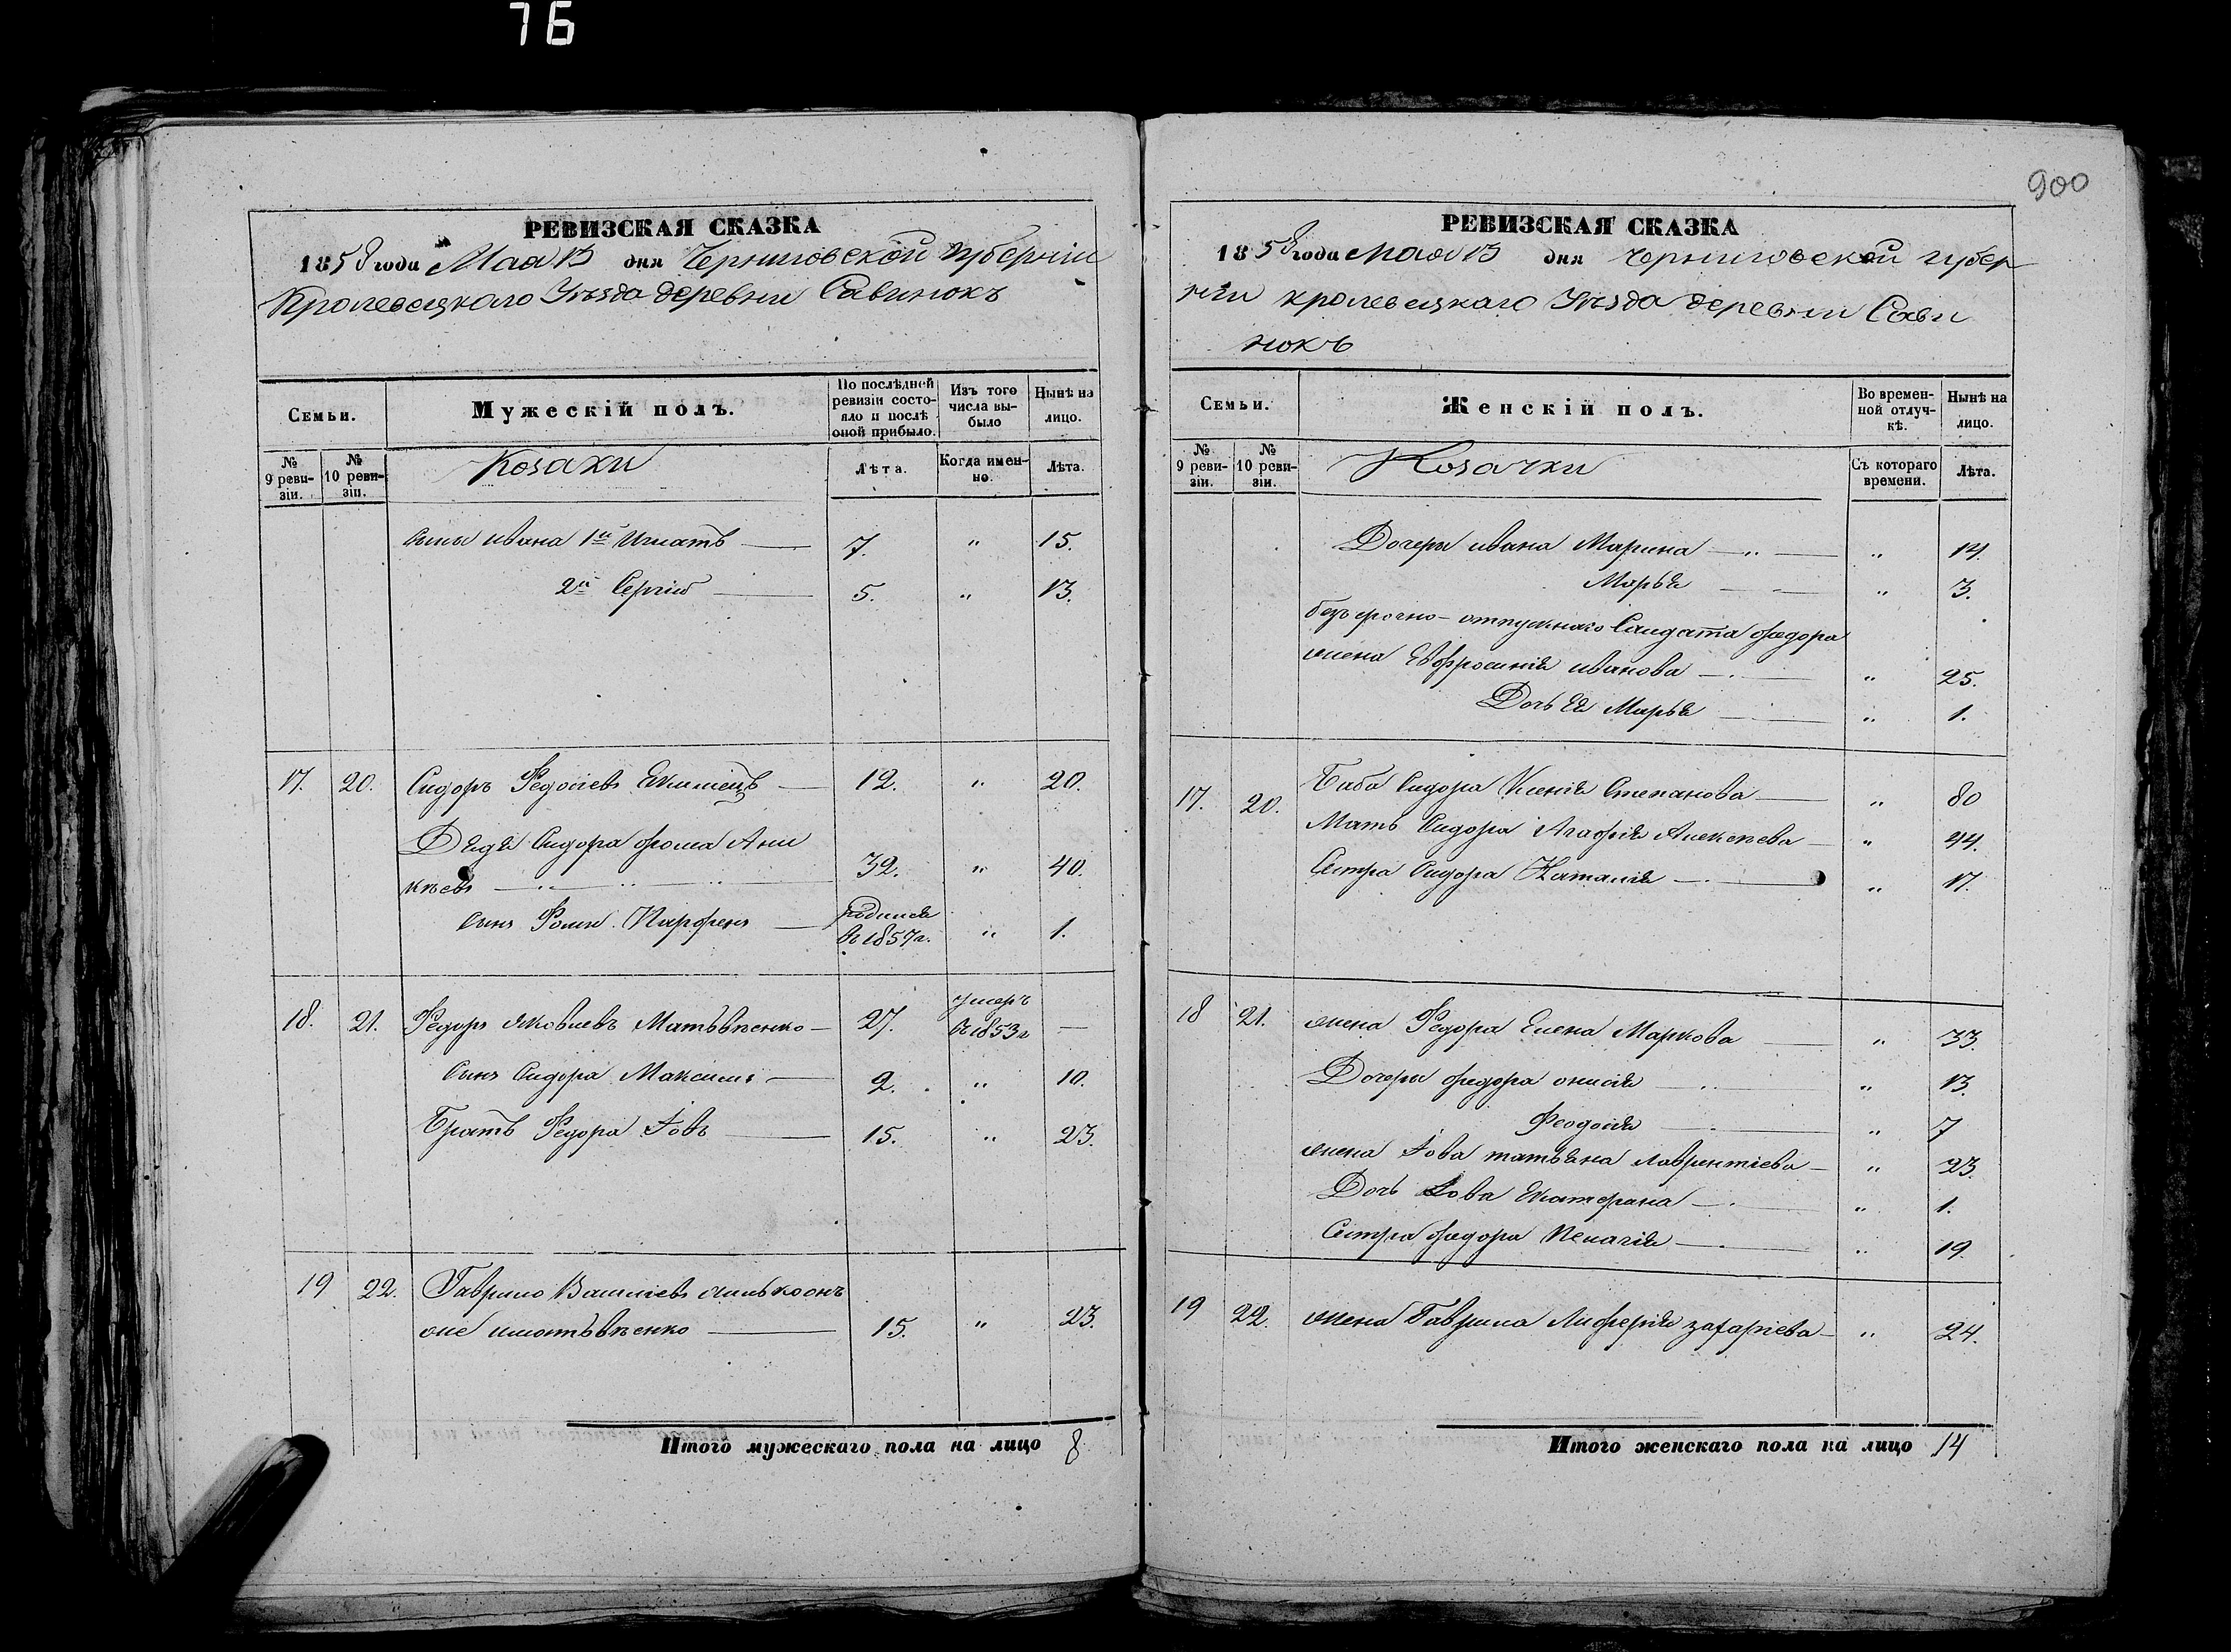 76
900
РЕВИЗСКАЯ СКАЗКА
1858 года Мая 13 дня Черниговской губерніи
Кролевецкаго Уѣзда деревни Савинокъ
Семьи.
Мужескій полъ.
По послѣдней ревизіи состояло и послѣ оной прибыло.
Изъ того числа выбыло
Нынѣ на лицо.
№ 9 ревизіи.
№ 10 ревизіи.
Козаки
Лѣта.
Когда именно.
Лѣта.
сыны ивана 1й Игнатъ 7. " 15.
2й Сергій 5. " 13.
17. 20. Сидоръ Федосіевъ 12. " 20.
Дядя Сидора фома Ани
кѣевъ 32. " 40.
сынъ Фомы Парфенъ родился въ 1857г. " 1.
18. 21. Федоръ яковлевъ Матвѣенко 27. умеръ въ 1853г —
сынъ Сидора Максимъ 2. " 10.
Братъ Федора Іовъ 15. " 23.
19 22. Гаврило Василіевъ онъ
же матвѣенко 15. " 23.
Итого мужескаго пола на лицо 8
РЕВИЗСКАЯ СКАЗКА
1858 года мая 13 дня Черниговской губер
ніи кролевецкаго Уѣзда деревни Сави
нокъ
Семьи.
Женскій полъ.
Во временной отлучкѣ.
Нынѣ на лицо.
№ 9 ревизіи.
№ 10 ревизіи.
Козачки
Съ котораго времени.
Лѣта.
Дочеры ивана Марина " 14.
Марья " 3.
безсрочно-отпускнаго Салдата федора
жена Евфросинія иванова " 25.
Дочь Ея Марья " 1.
17. 20. Баба Сидора Ксенія Степанова " 80
Мать Сидора Агафія Алексѣева " 44.
Сестра Сидора Наталія " 17.
18 21. жена Федора Елена Маркова " 33.
Дочеры федора онисія " 13.
Феодосія " 7
жена Іова татьяна лаврентіева " 23.
Дочь Іова Екатерина " 1.
Сестра федора Пелагія " 19.
19 22. жена Гаврила захаріева " 24.
Итого женскаго пола на лицо 14